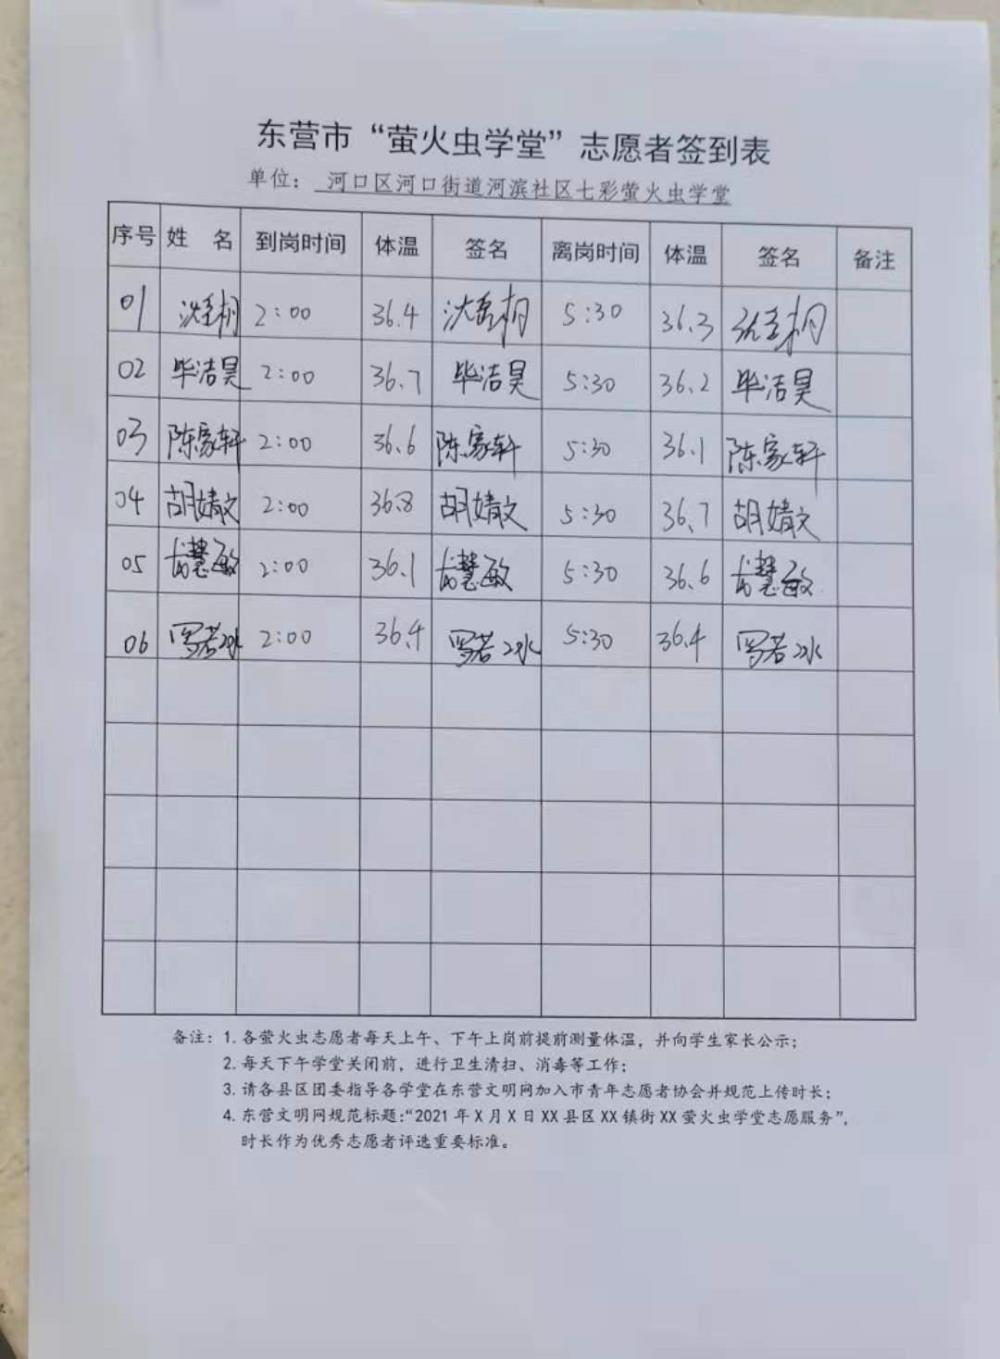 东营市“萤火虫学堂”志愿者签到表
单位：河口区河口街道河滨社区七彩萤火虫学堂
序号 姓 名 到岗时间 体温 签名 离岗时间 体温 签名 备注
01 2:00 36.4 5:30 36.3
02 毕洁昊 2:00 36.7 毕洁昊 5:30 36.2 毕洁昊
03 陈家轩 2:00 36.6 陈家轩 5:30 36.1 陈家轩
04 胡婧文 2:00 36.8 胡婧文 5:30 36.7 胡婧文
05 2:00 36.1 5:30 36.6
06 罗若冰 2:00 36.4 罗若冰 5:30 36.4 罗若冰
备注：1. 各萤火虫志愿者每天上午、下午上岗前提前测量体温，并向学生家长公示；
2. 每天下午学堂关闭前，进行卫生清扫、消毒等工作；
3. 请各县区团委指导各学堂在东营文明网加入市青年志愿者协会并规范上传时长；
4. 东营文明网规范标题：“2021年X月X日XX县区XX镇街XX萤火虫学堂志愿服务”，
时长作为优秀志愿者评选重要标准。